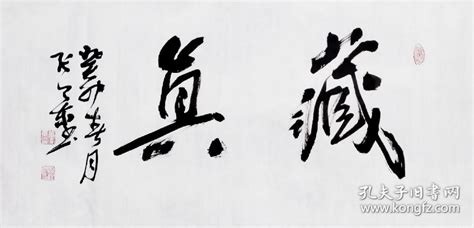 藏真
癸卯春月
孔夫子旧书网
www.kongfz.com